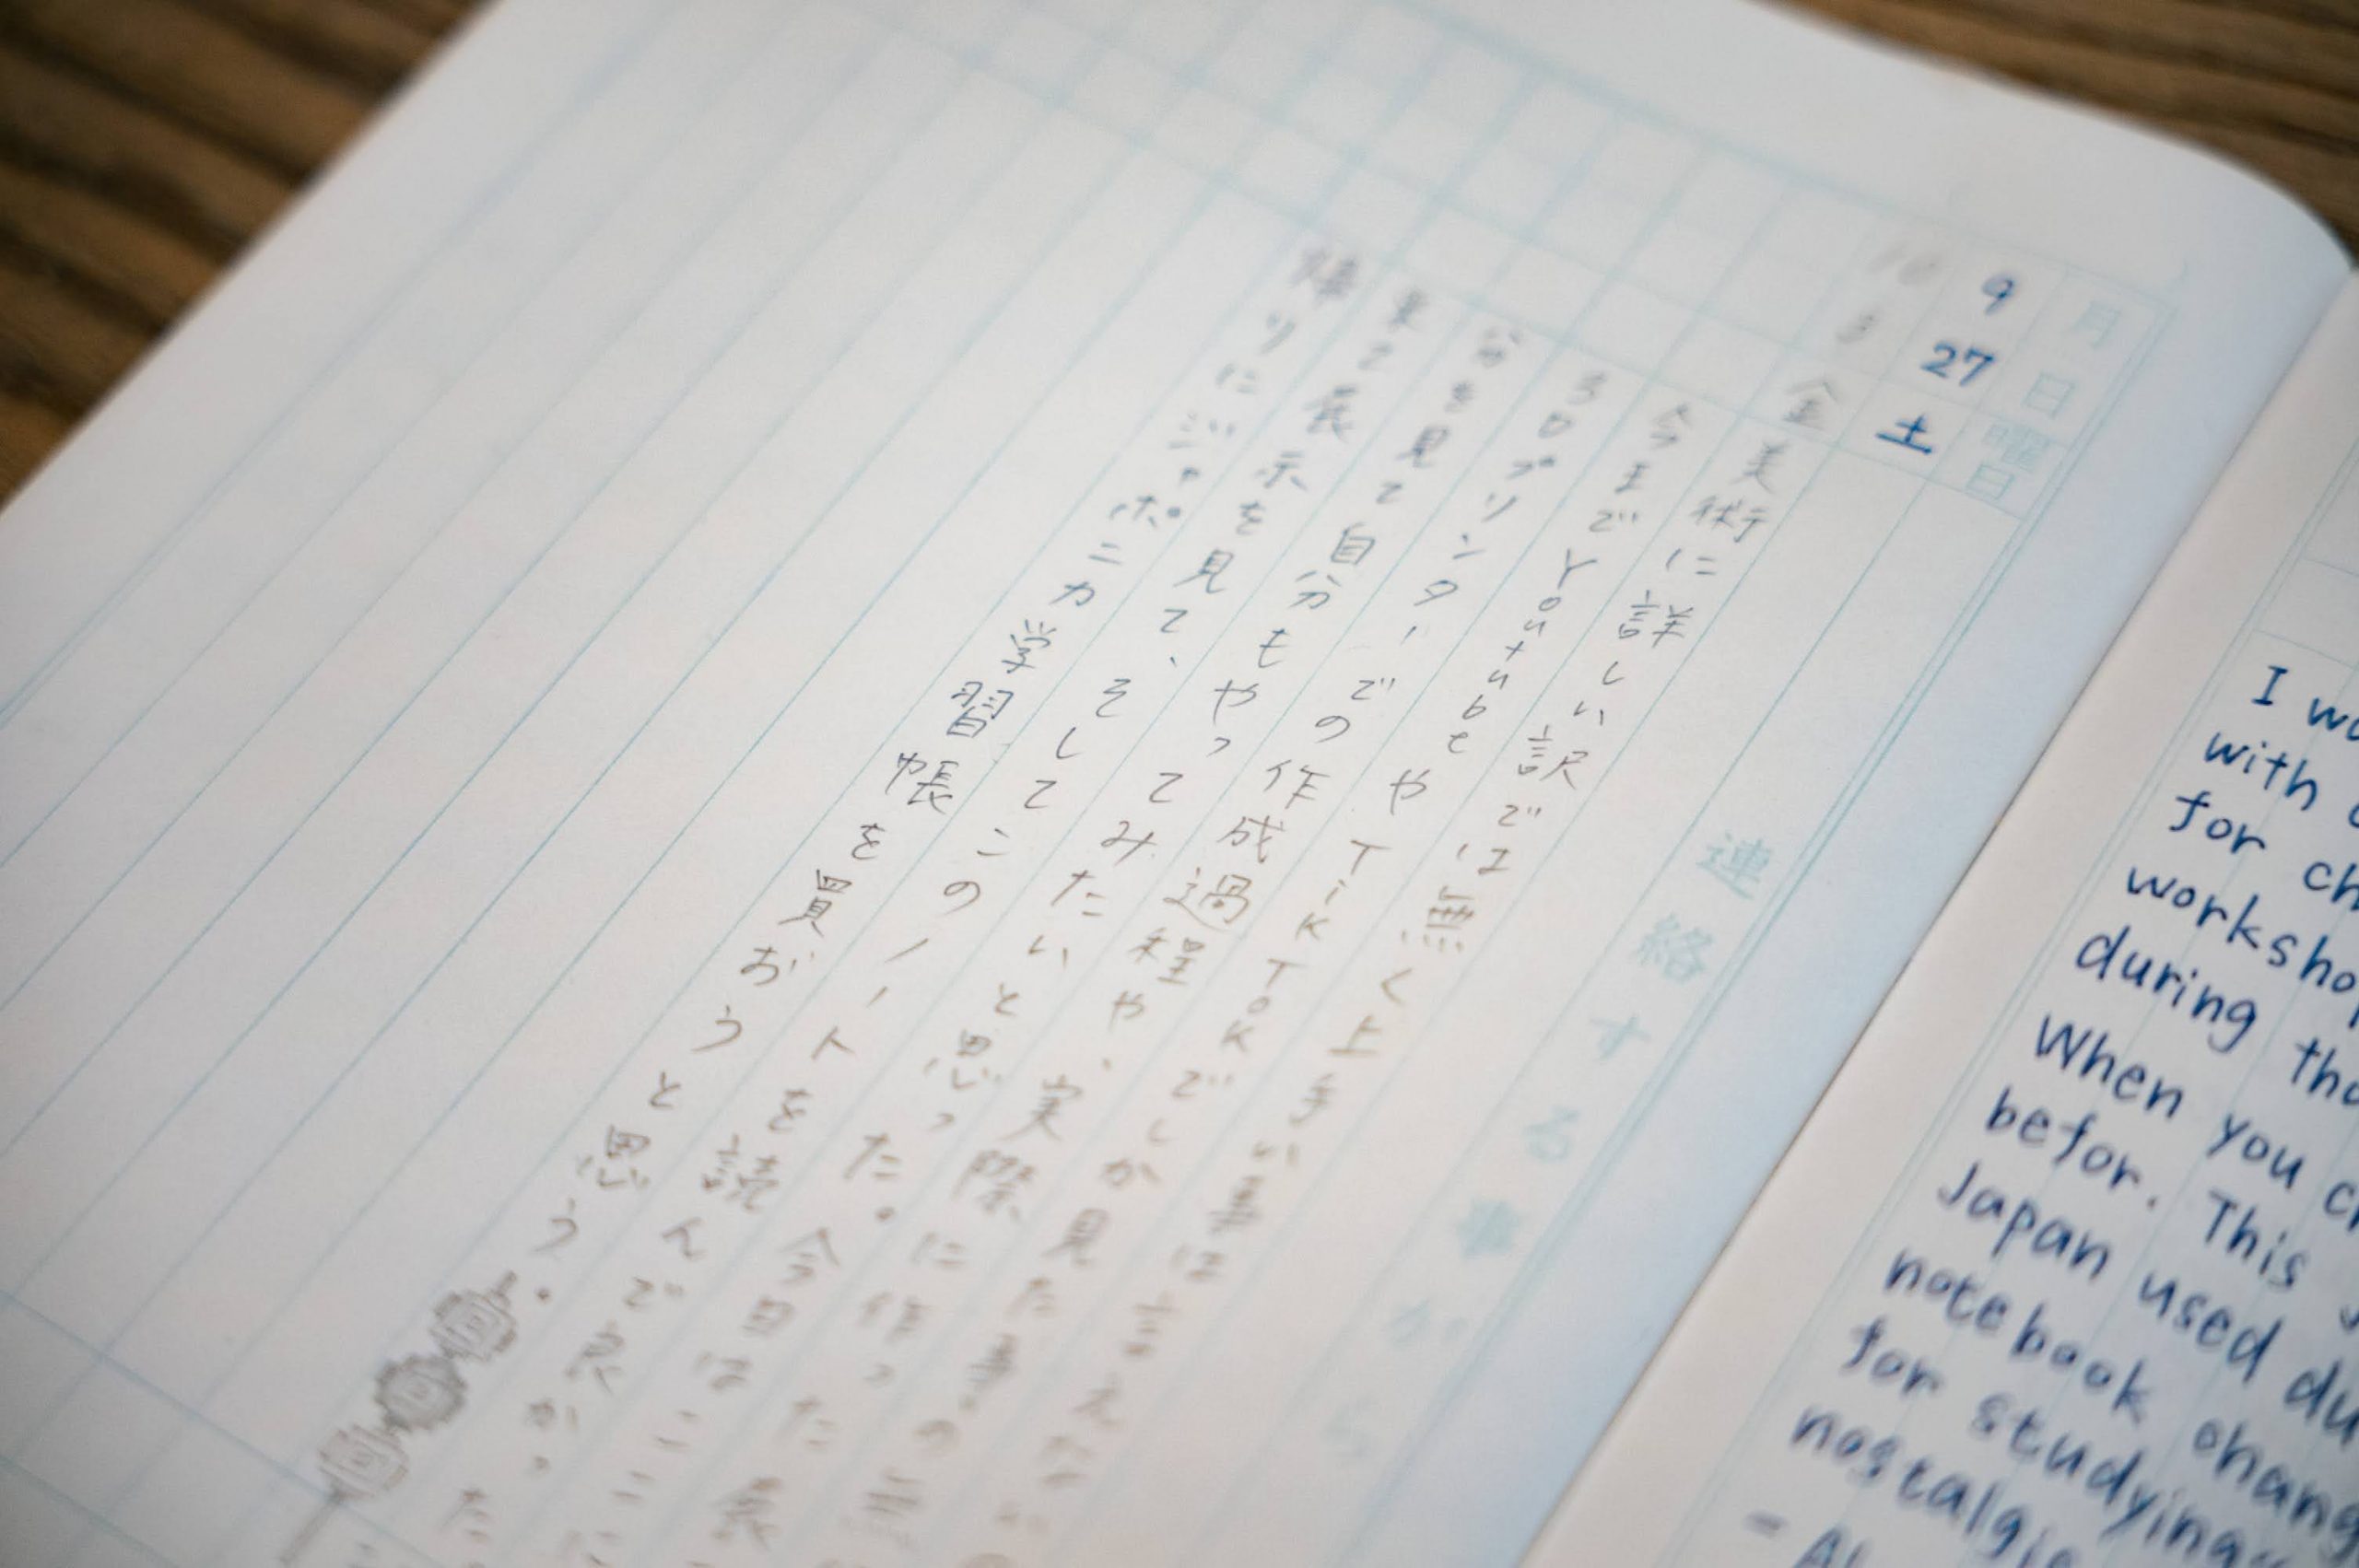 月 日 曜日
連絡する事がら
9 27 土
10 3 金
美術に詳しい訳では無く上手い事は言えない
今までYoutubeやTikTokでしか見た事の
3Dプリンターでの作成過程や、実際に作った
分を見て自分もやってみたいと思った。今日はここに
来て展示を見て、そしてこのノートを読んで良かった
帰りにジャポニカ学習帳を買おうと思う。
I
with
for
during
When you
befor. This
Japan used
notebook
for studying